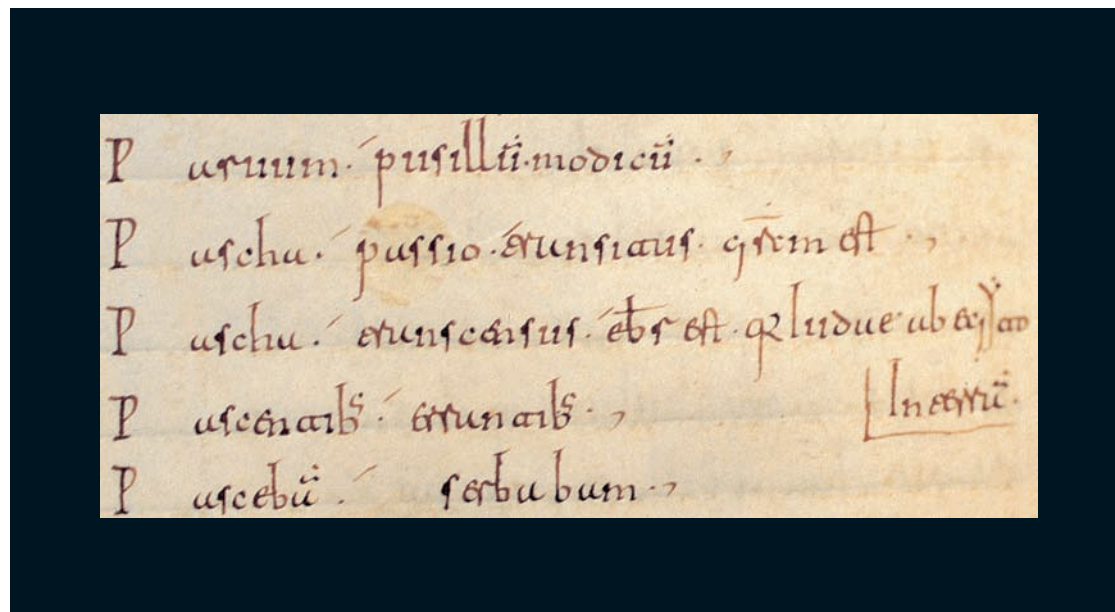 P aruum· pusillũ· modicũ·
P ascha· passio· transitus· grecm est·
P ascha· transcensus· ebr est· qr iudae ab
P ascentibs· erantibs· In terrã·
P ascebã· serbabam·